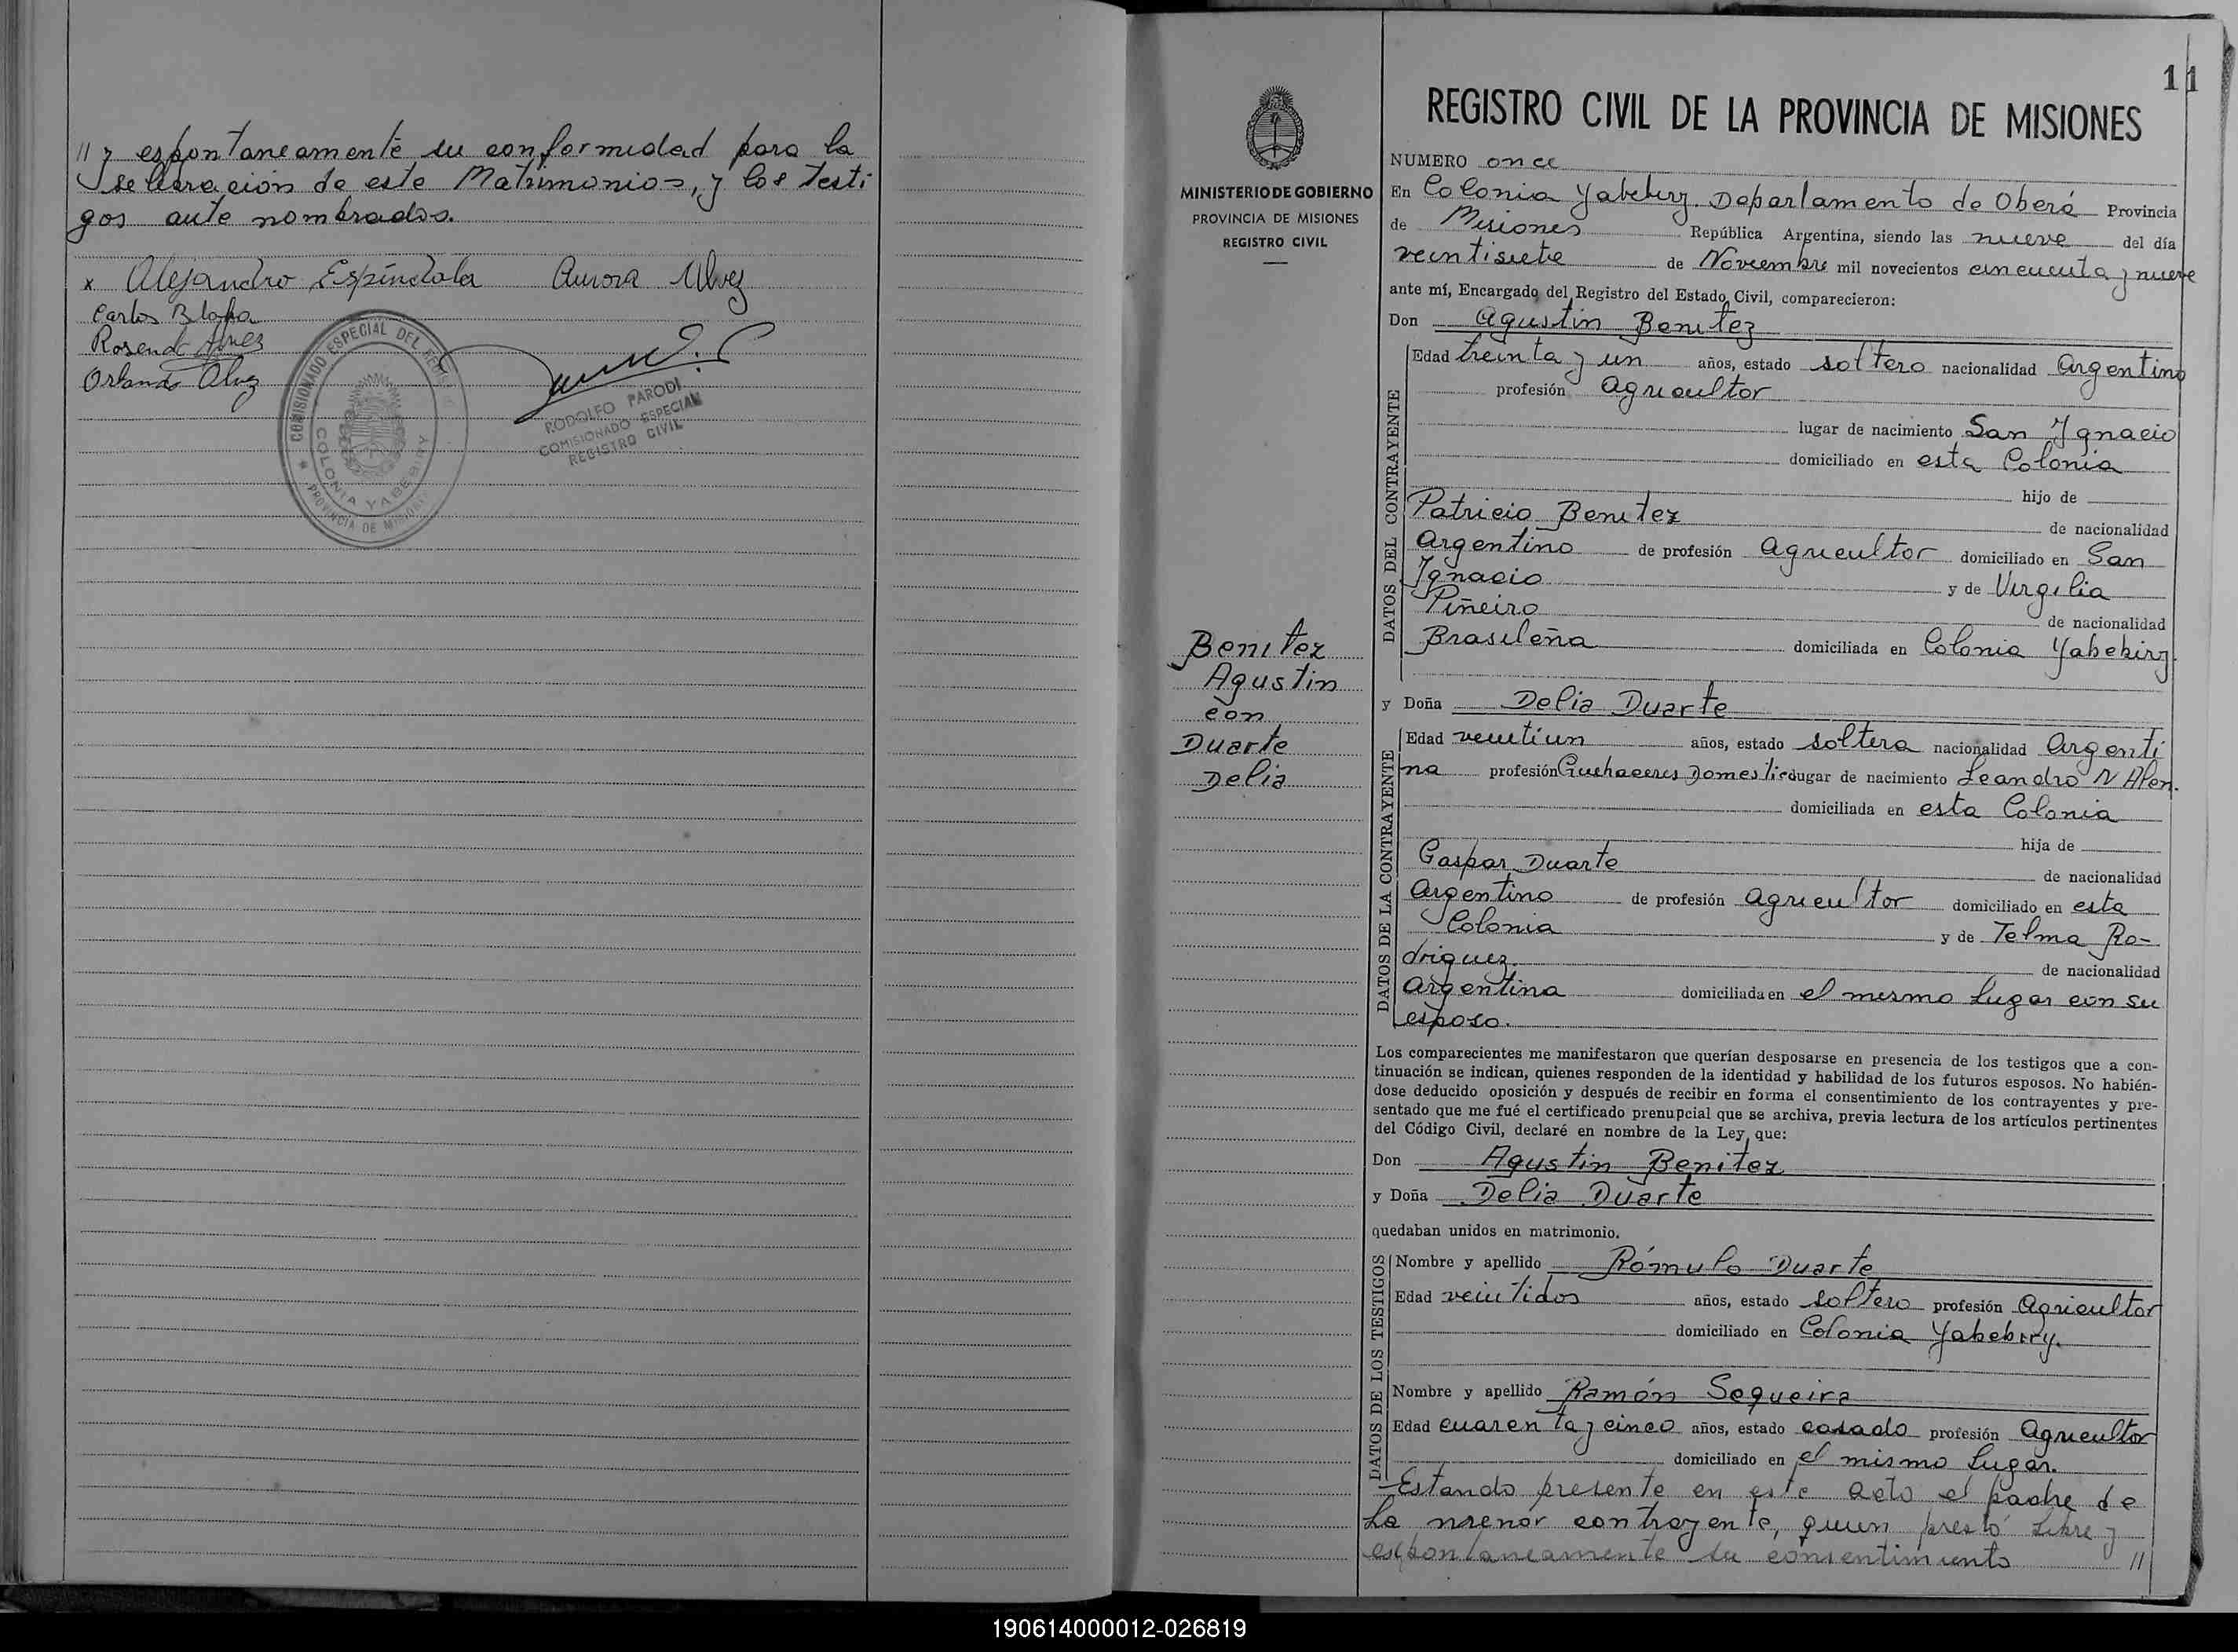 // y espontaneamente su conformidad para la
selebracion de este Matrimonio=, y los testi
gos ante nombrados.
x Alejandro Espíndola Aurora Alvez
Carlos B
Rosendo
Orlando Alvez
COMISIONADO ESPECIAL DEL
COLONIA YABEBIRY
* PROVINCIA DE MISIONES
RODOLFO PARODI
COMISIONADO ESPECIAL
REGISTRO CIVIL
11
MINISTERIO DE GOBIERNO
PROVINCIA DE MISIONES
REGISTRO CIVIL
Benitez
Agustin
con
Duarte
Delia
REGISTRO CIVIL DE LA PROVINCIA DE MISIONES
NUMERO once
En Colonia Yabebiry. Departamento de Oberá Provincia
de Misiones República Argentina, siendo las nueve del día
veintisiete de Noviembre mil novecientos cincuenta y nueve
ante mí, Encargado del Registro del Estado Civil, comparecieron:
Don Agustin Benitez
DATOS DEL CONTRAYENTE
Edad treinta y un años, estado soltero nacionalidad Argentino
profesión Agricultor
lugar de nacimiento San Ignacio
domiciliado en esta Colonia
hijo de
Patricio Benitez
de nacionalidad
Argentino de profesión Agricultor domiciliado en San
Ignacio y de Virgilia
Piñeiro
de nacionalidad
Brasileña domiciliada en Colonia Yabebiry.
y Doña Delia Duarte
DATOS DE LA CONTRAYENTE
Edad veintiun años, estado soltera nacionalidad Argenti
na profesión Quehaceres Domestico lugar de nacimiento Leandro N Alen.
domiciliada en esta Colonia
hija de
Gaspar Duarte
de nacionalidad
Argentino de profesión Agricultor domiciliado en esta
Colonia y de Telma Ro-
driguez.
de nacionalidad
Argentina domiciliada en el mismo lugar con su
esposo.
Los comparecientes me manifestaron que querían desposarse en presencia de los testigos que a con-
tinuación se indican, quienes responden de la identidad y habilidad de los futuros esposos. No habién-
dose deducido oposición y después de recibir en forma el consentimiento de los contrayentes y pre-
sentado que me fué el certificado prenupcial que se archiva, previa lectura de los artículos pertinentes
del Código Civil, declaré en nombre de la Ley que:
Don Agustin Benitez
y Doña Delia Duarte
quedaban unidos en matrimonio.
DATOS DE LOS TESTIGOS
Nombre y apellido Rómulo Duarte
Edad veintidos años, estado soltero profesión Agricultor
domiciliado en Colonia Yabebiry.
Nombre y apellido Ramón Sequeira
Edad cuarenta y cinco años, estado casado profesión Agricultor
domiciliado en el mismo lugar.
Estando presente en este acto el padre de
la menor contrayente, quien prestó libre y
espontaneamente su consentimiento //
190614000012-026819